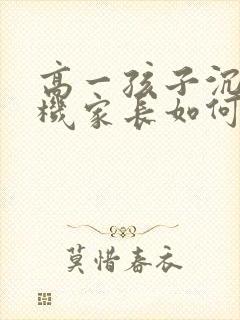 高一孩子沉
機家长如何
莫惜春衣